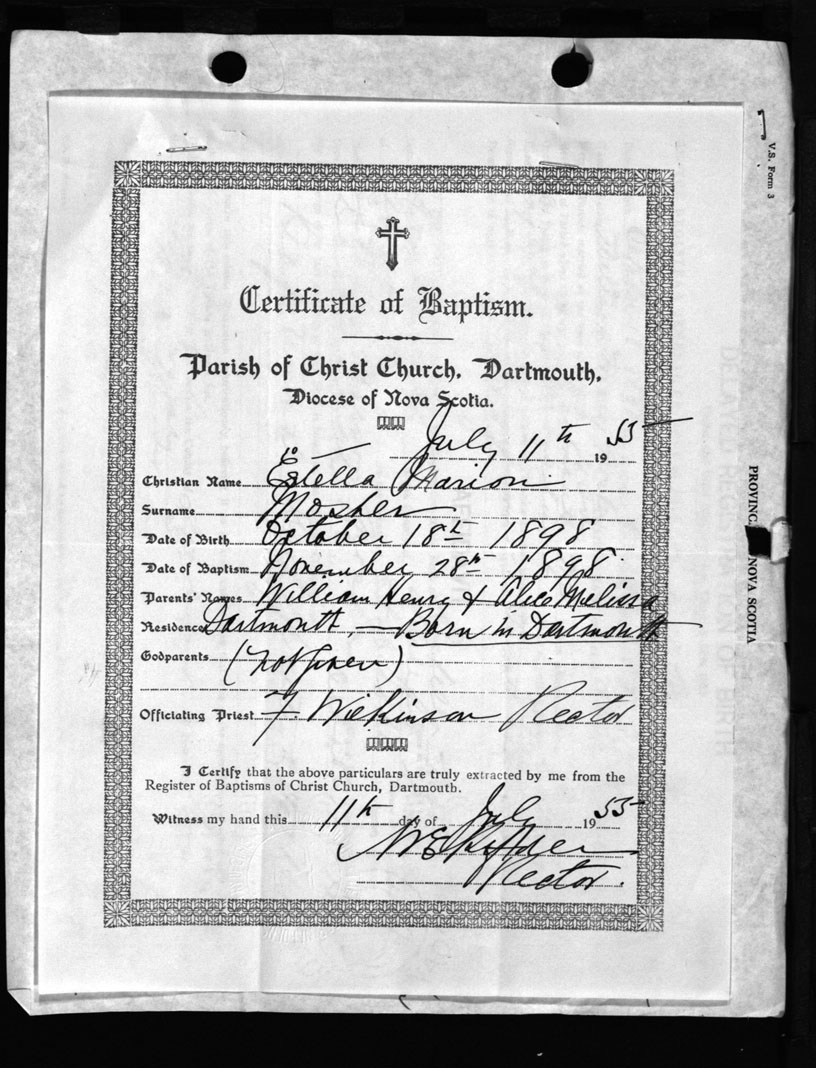 V.S. Form 3
Certificate of Baptism.
Parish of Christ Church, Dartmouth,
Diocese of Nova Scotia.
July 11th 1955
Christian Name Estella Marion
Surname Mosher
Date of Birth October 18th 1898
Date of Baptism November 28th 1898
Parents' Names William Henry & Alice Melissa
Residence Dartmouth, — Born in Dartmouth
Godparents (not given)
Officiating Priest F. Wilkinson Rector
I Certify that the above particulars are truly extracted by me from the
Register of Baptisms of Christ Church, Dartmouth.
Witness my hand this 11th day of July 1955
Rector.
NOVA SCOTIA